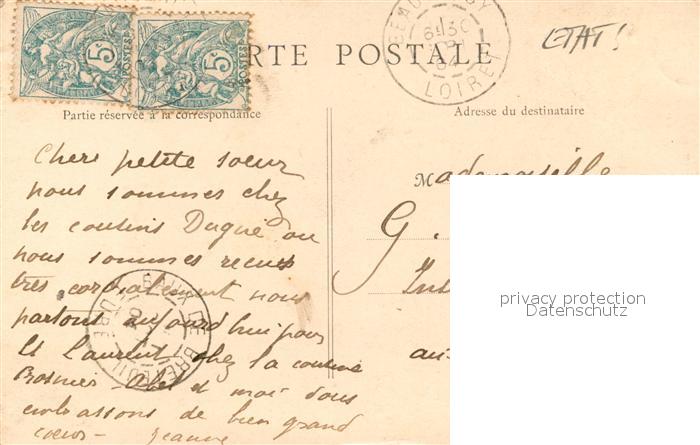 5c POSTES 5c POSTES
CARTE POSTALE
BEAUGENCY
6 30
LOIRET
ETAT!
Partie réservée à la correspondance
Adresse du destinataire
Chere petite soeur
nous sommes chez
les cousins Dugué ou
nous sommes recus
très cordialement nous
partons aujourd'hui pour
St Laurent chez la cousine
et moi vous
embrassons de bien grand
coeur - Jeanne
Mademoiselle
G.
privacy protection
Datenschutz
INDRE